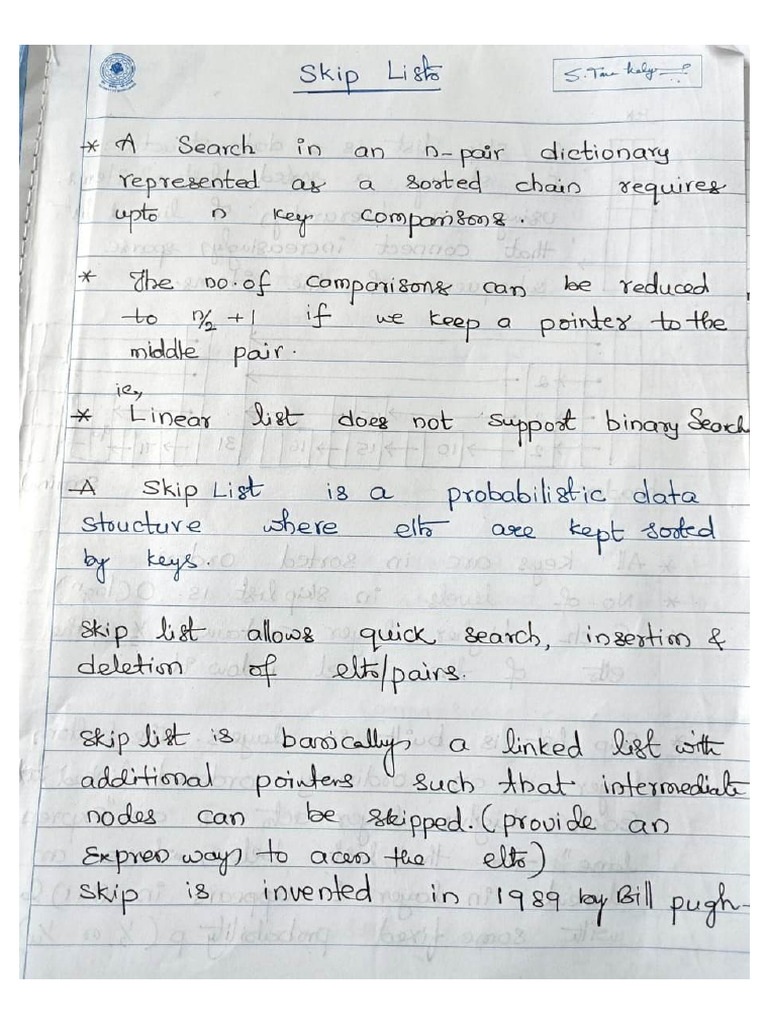 Skip Lists
* A Search in an n-pair dictionary
represented as a sorted chain requires
upto n key comparisons.
* The no.of comparisons can be reduced
to n/2 +1 if we keep a pointer to the
middle pair.
ie,
* Linear list does not support binary Search
A Skip List is a probabilistic data
structure where elts are kept sorted
by keys.
Skip list allows quick search, insertion &
deletion of elts/pairs.
Skip list is basically a linked list with
additional pointers such that intermediate
nodes can be skipped. (provide an
Express ways to acess the elts)
Skip is invented in 1989 by Bill pugh